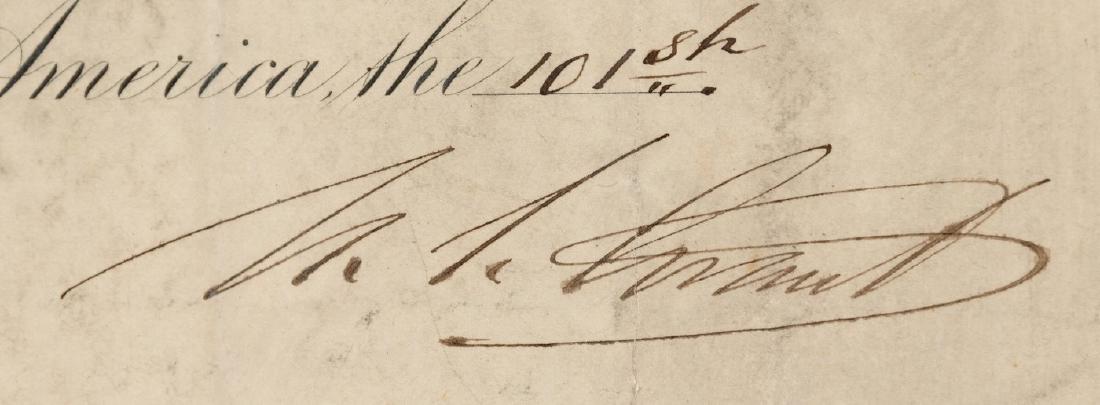 America, the 101st.
U. S. Grant